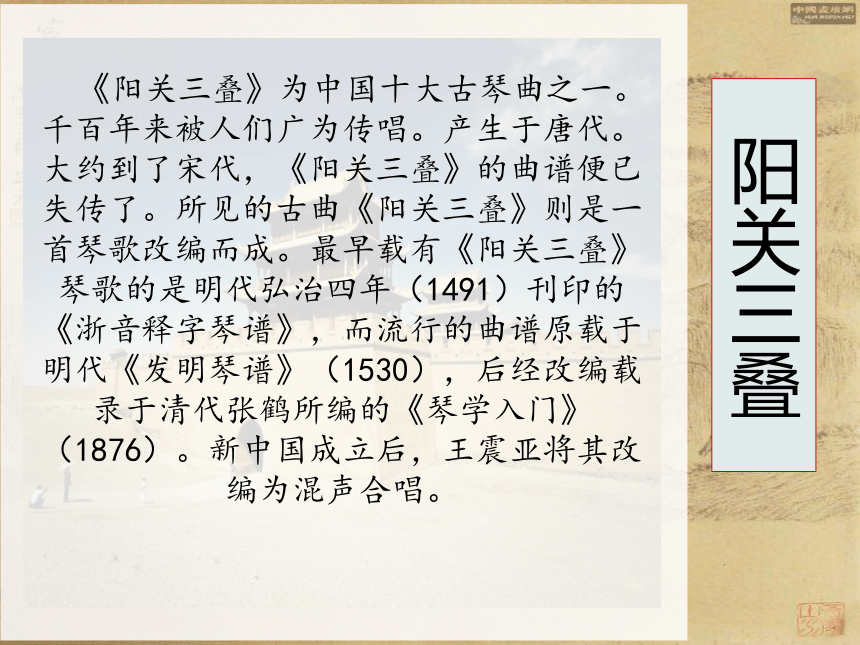 《阳关三叠》为中国十大古琴曲之一。
千百年来被人们广为传唱。产生于唐代。
大约到了宋代，《阳关三叠》的曲谱便已
失传了。所见的古曲《阳关三叠》则是一
首琴歌改编而成。最早载有《阳关三叠》
琴歌的是明代弘治四年（1491）刊印的
《浙音释字琴谱》，而流行的曲谱原载于
明代《发明琴谱》（1530），后经改编载
录于清代张鹤所编的《琴学入门》
（1876）。新中国成立后，王震亚将其改
编为混声合唱。
阳关三叠